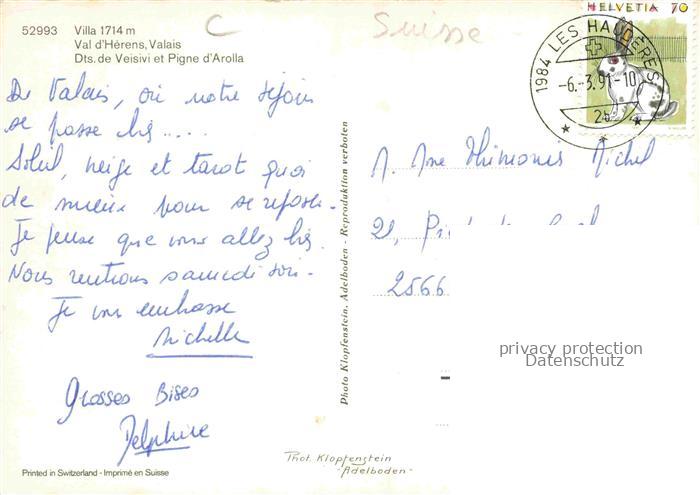 52993 Villa 1714 m
Val d'Hérens, Valais
Dts. de Veisivi et Pigne d'Arolla
C
Suisse
HELVETIA 70
1984 LES HAUDÈRES
-6.-3.91-10
2b
De Valais, où notre séjour
se passe bien.....
Soleil, neige et tarot quoi
de mieux pour se reposer.
Je pense que vous allez bien.
Nous rentrons samedi soir.
Je vous embrasse
Michelle
Grosses Bises
Delphine
Printed in Switzerland - Imprimé en Suisse
Photo Klopfenstein, Adelboden - Reproduktion verboten
Phot. Klopfenstein
-Adelboden-
M. Mme Michel
21,
2566
privacy protection
Datenschutz